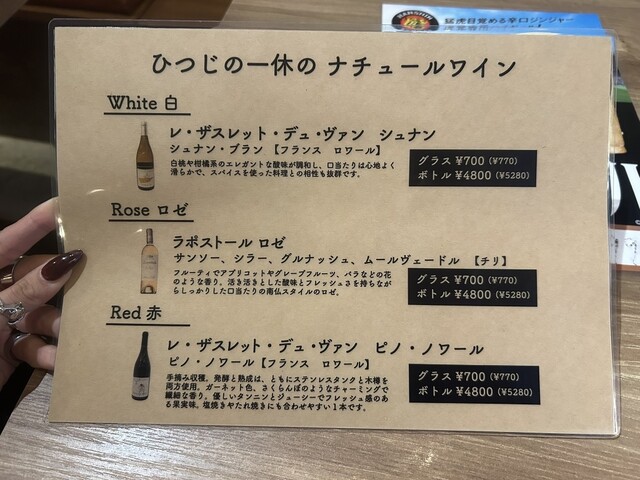 HANSHIN
猛虎目覚める辛口ジンジャー
ひつじの一休の ナチュールワイン
White 白
レ・ザスレット・デュ・ヴァン シュナン
シュナン・ブラン 【フランス ロワール】
白桃や柑橘系のエレガントな酸味が調和し、口当たりは心地よく
滑らかで、スパイスを使った料理との相性も抜群です。
グラス ¥700 (¥770)
ボトル ¥4800 (¥5280)
Rose ロゼ
ラポストール ロゼ
サンソー、シラー、グルナッシュ、ムールヴェードル 【チリ】
フルーティでアプリコットやグレープフルーツ、バラなどの花
のような香り。活き活きとした酸味とフレッシュさを持ちなが
らしっかりした口当たりの南仏スタイルのロゼ。
グラス ¥700 (¥770)
ボトル ¥4800 (¥5280)
Red 赤
レ・ザスレット・デュ・ヴァン ピノ・ノワール
ピノ・ノワール【フランス ロワール】
手摘み収穫。発酵と熟成は、ともにステンレスタンクと木樽を
両方使用。ガーネット色、さくらんぼのようなチャーミングで
繊細な香り。優しいタンニンとジューシーでフレッシュ感のあ
る果実味。塩焼きやたれ焼きにも合わせやすい1本です。
グラス ¥700 (¥770)
ボトル ¥4800 (¥5280)